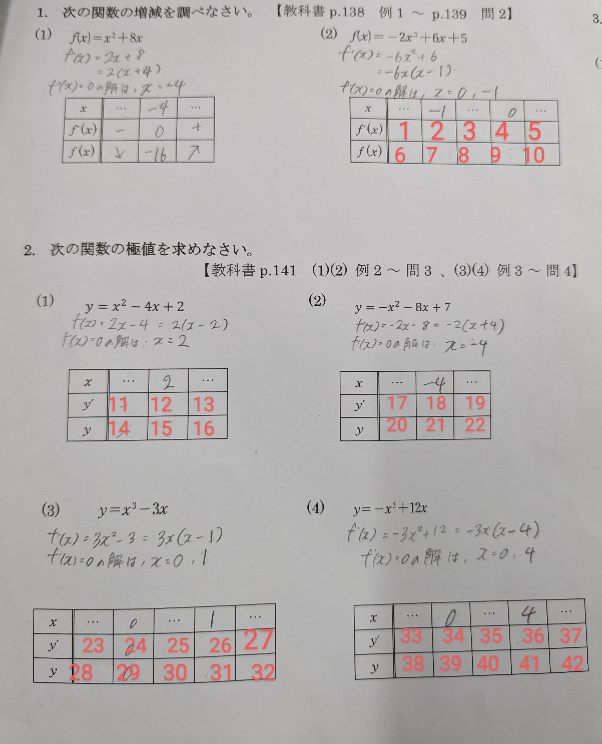 1. 次の関数の増減を調べなさい。 【教科書 p.138 例 1 ～ p.139 問 2】
3.
(1) f(x)=x²+8x
f'(x)=2x+8
=2(x+4)
f'(x)=0の解は、x=-4
x … -4 …
f'(x) - 0 +
f(x) ↘ -16 ↗
(2) f(x)=-2x³+6x+5
f'(x)=-6x²+6
=-6x(x-1)
f'(x)=0の解は、x=0,-1
x … -1 … 0 …
f'(x) 1 2 3 4 5
f(x) 6 7 8 9 10
2. 次の関数の極値を求めなさい。
【教科書 p.141 (1)(2) 例 2 ～ 問 3 、(3)(4) 例 3 ～ 問 4】
(1) y=x²-4x+2
f'(x)=2x-4=2(x-2)
f'(x)=0の解は、x=2
x … 2 …
y' 11 12 13
y 14 15 16
(2) y=-x²-8x+7
f'(x)=-2x-8=-2(x+4)
f'(x)=0の解は、x=-4
x … -4 …
y' 17 18 19
y 20 21 22
(3) y=x³-3x
f'(x)=3x²-3=3x(x-1)
f'(x)=0の解は、x=0,1
x … 0 … 1 …
y' 23 24 25 26 27
y 28 29 30 31 32
(4) y=-x³+12x
f'(x)=-3x²+12=-3x(x-4)
f'(x)=0の解は、x=0,4
x … 0 … 4 …
y' 33 34 35 36 37
y 38 39 40 41 42